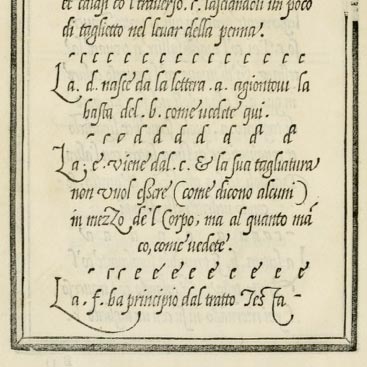 te calasi co'l traverso .c. lasciandoli un poco
di taglietto nel levar della penna.
- r c c c c c c c c c c
La .d. nasce da la lettera .a. agiontovi la
hasta del .b. come vedete qui.
- r c o d d d d d d
La ; e viene dal .c. & la sua tagliatura
non vuol essere (come dicono alcuni)
in mezzo de'l Corpo, ma al quanto mā
co, come vedete.
- r c e é é é é é é é
La .f. ha principio dal tratto Testa -